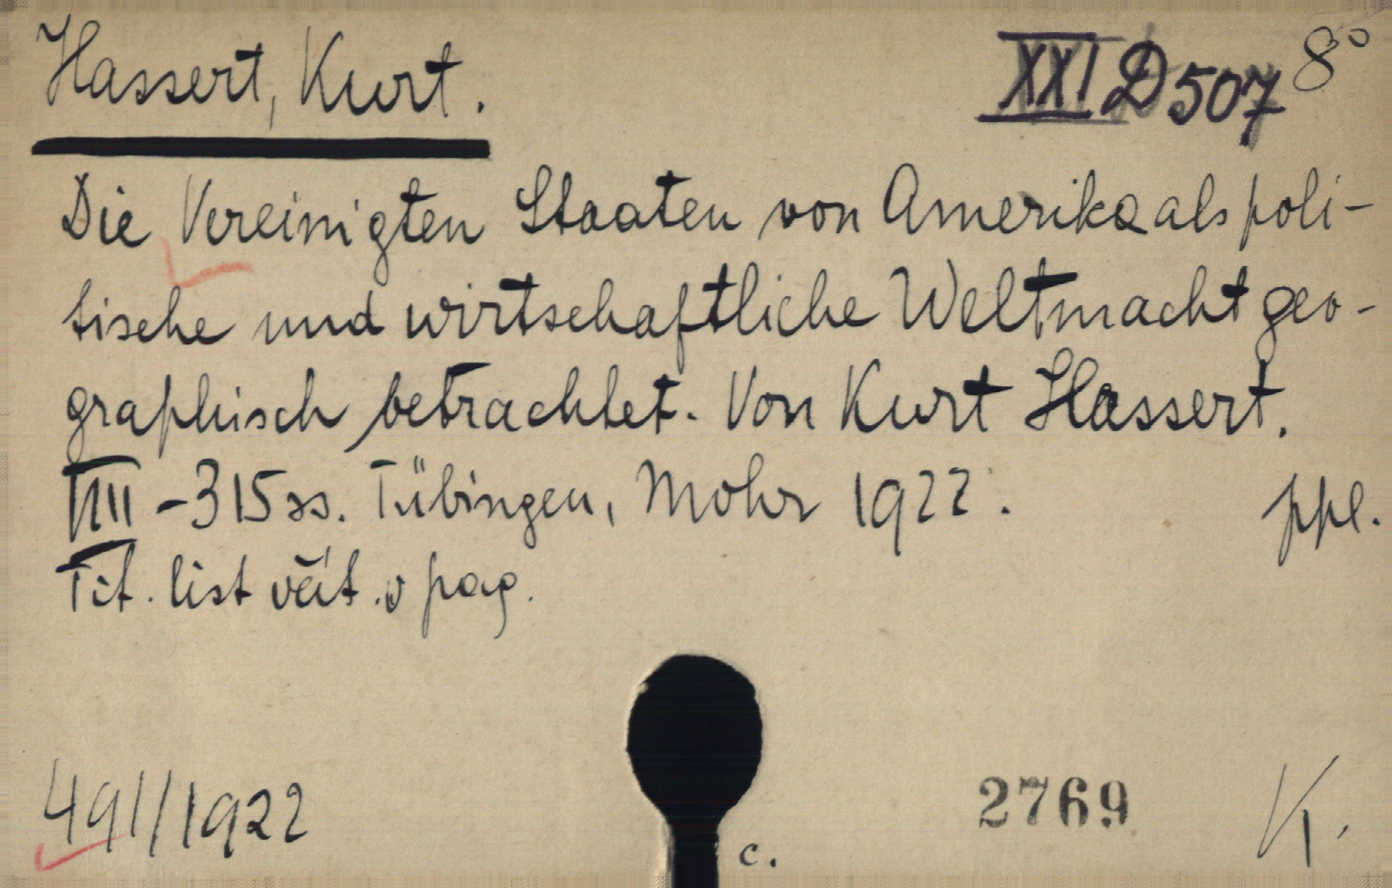 Hassert, Kurt.
XXI D 507 8°
Die Vereinigten Staaten von Amerika als poli-
tische und wirtschaftliche Weltmacht geo-
graphisch betrachtet. Von Kurt Hassert.
VIII - 315 ss. Tübingen, Mohr 1922.
ppl.
Tit. list včít. v pag.
491/1922
2769
K.
c.